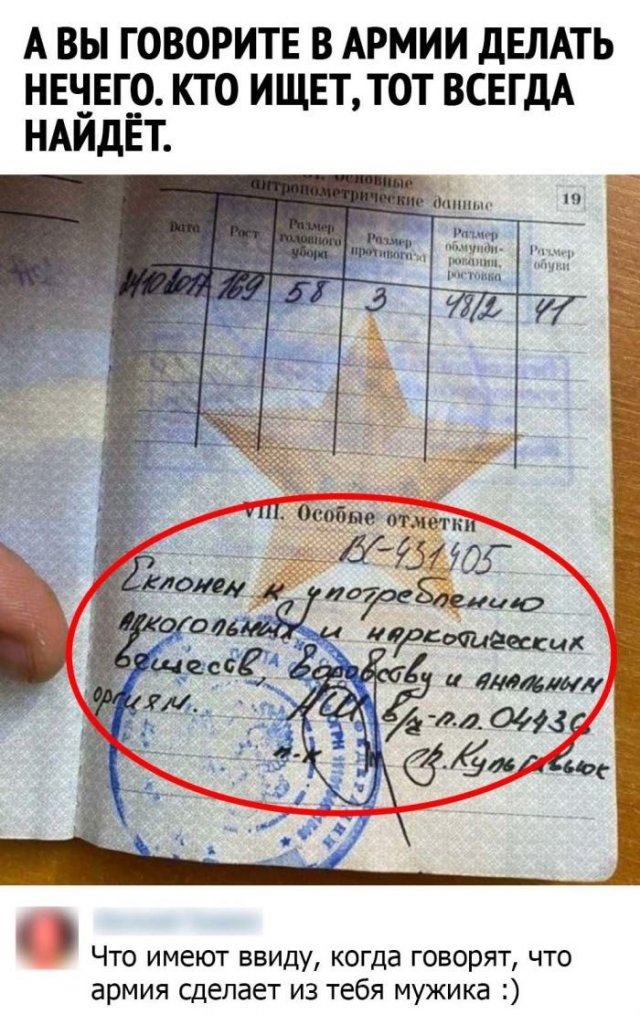 А ВЫ ГОВОРИТЕ В АРМИИ ДЕЛАТЬ
НЕЧЕГО. КТО ИЩЕТ, ТОТ ВСЕГДА
НАЙДЁТ.
основные
антропометрические данные
19
Дата
Рост
Размер головного убора
Размер противогаза
Размер обмунди-
рования,
ростовка
Размер
обуви
24102017 169 58 3 48/2 41
VIII. Особые отметки
ВС-431405
Склонен к употреблению
алкогольных и наркотических
веществ, воровству и анальным
оргиям...
НШ в/ч-п.п. 04436
п-к
Что имеют ввиду, когда говорят, что
армия сделает из тебя мужика :)